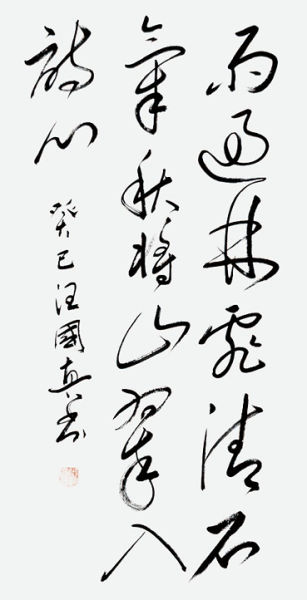 雨過林霏清石
氣秋將山翠入
詩心
癸巳汪國真書